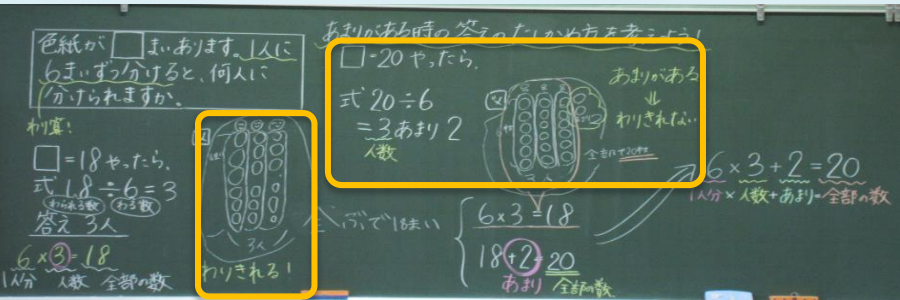 あまりがある時の答えのたしかめ方を考えよう!
色紙が□まいあります。1人に
6まいずつ分けると、何人に
分けられますか。
わり算!
□=18やったら、
式 18÷6=3
わられる数 わる数
答え 3人
6×3=18
1人分 人数 全部の数
図
3人
わりきれる!
全ぶで18まい
□=20やったら、
式 20÷6
=3あまり2
人数
図
3人
全部で20枚
あまりがある
⇓
わりきれない
6×3=18
18+2=20
あまり 全部の数
6×3+2=20
1人分×人数+あまり=全部の数